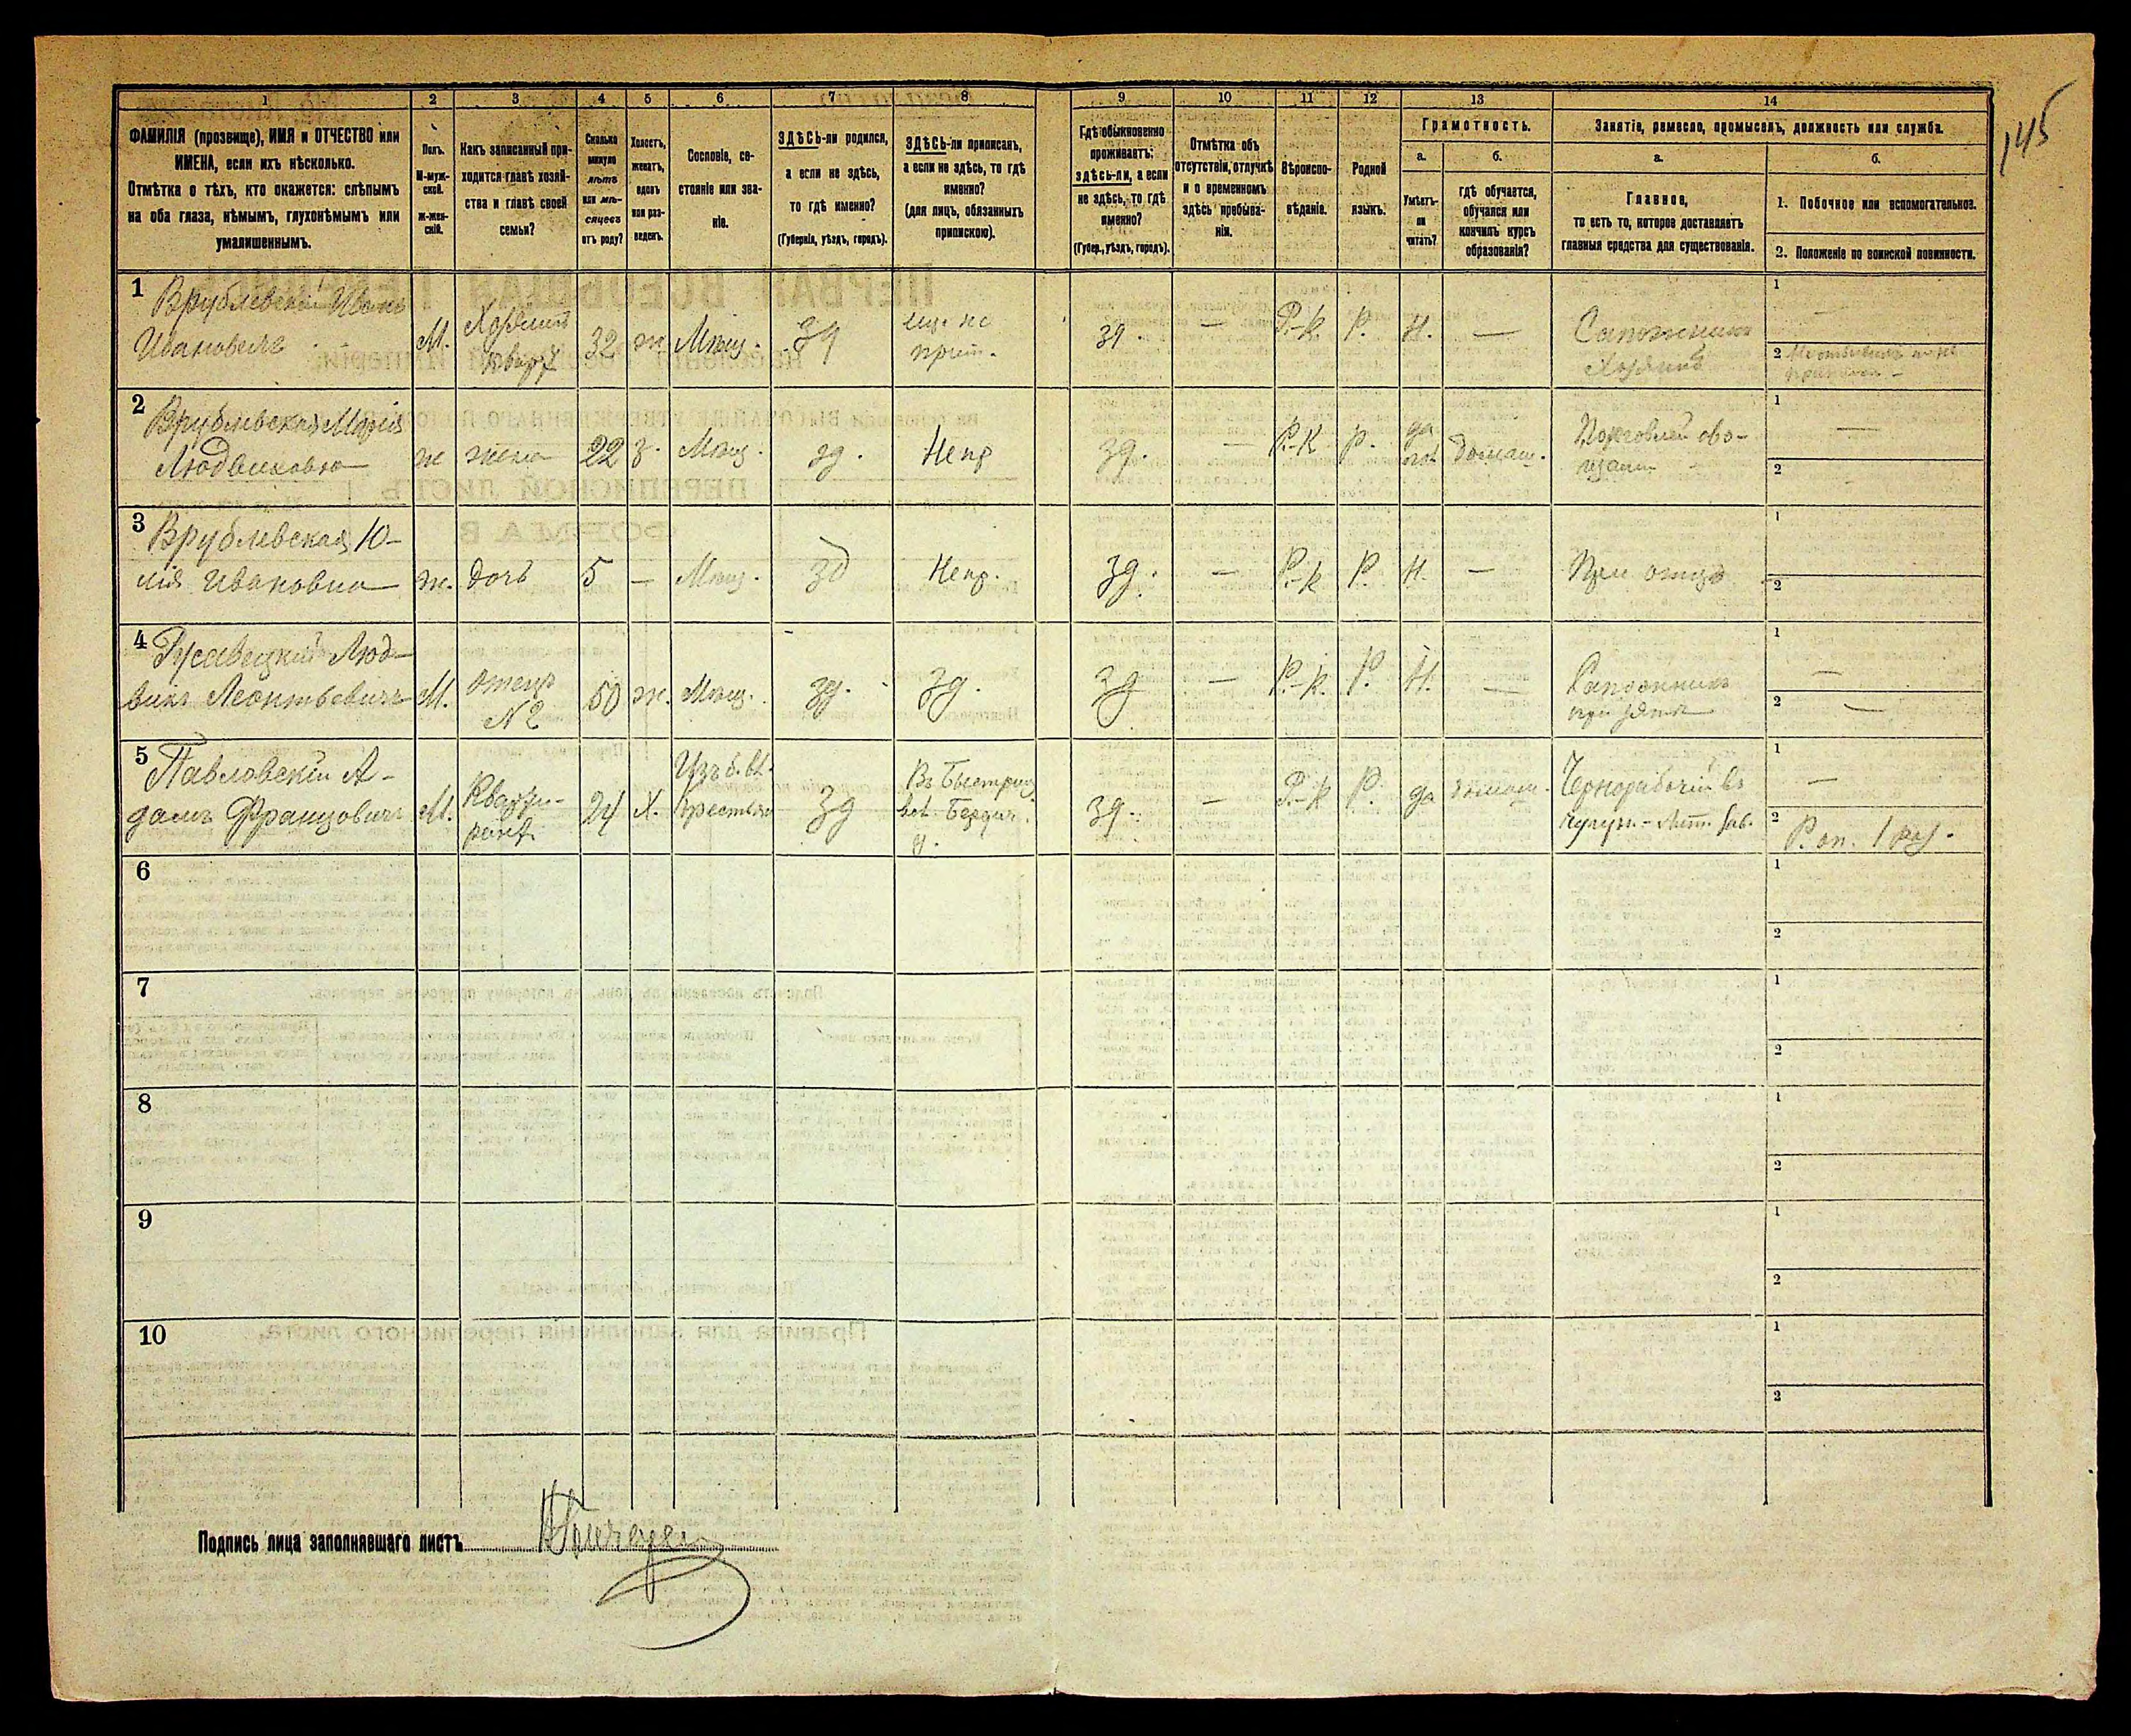 145
1 2 3 4 5 6 7 8 9 10 11 12 13 14
ФАМИЛІЯ (прозвище), ИМЯ и ОТЧЕСТВО или
ИМЕНА, если ихъ нѣсколько.
Отмѣтка о тѣхъ, кто окажется: слѣпымъ
на оба глаза, нѣмымъ, глухонѣмымъ или
умалишеннымъ.
Полъ.
М-муж-
ской.
ж-жен-
скій.
Какъ записанный при-
ходится главѣ хозяй-
ства и главѣ своей
семьи?
Сколько
минуло
лѣтъ
или мѣ-
сяцевъ
отъ роду?
Холостъ,
женатъ,
вдовъ
или раз-
веденъ.
Сословіе, со-
стояніе или зва-
ніе.
ЗДѢСЬ-ли родился,
а если не здѣсь,
то гдѣ именно?
(Губернія, уѣздъ, городъ).
ЗДѢСЬ-ли приписанъ,
а если не здѣсь, то гдѣ
именно?
(для лицъ, обязанныхъ
припискою).
Гдѣ обыкновенно
проживаетъ:
здѣсь-ли, а если
не здѣсь, то гдѣ
именно?
(Губер., уѣздъ, городъ).
Отмѣтка объ
отсутствіи, отлучкѣ
и о временномъ
здѣсь пребыва-
ніи.
Вѣроиспо-
вѣданіе.
Родной
языкъ.
Грамотность.
а.
Умѣетъ-
ли
читать?
б.
гдѣ обучается,
обучался или
кончилъ курсъ
образованія?
Занятіе, ремесло, промыселъ, должность или служба.
а.
Главное,
то есть то, которое доставляетъ
главныя средства для существованія.
б.
1. Побочное или вспомогательное.
2. Положеніе по воинской повинности.
1 Врублевскій Иванъ
Ивановичъ М. Хозяинъ 32 ж Мѣщ. зд еще не зд — Р.-К. Р. Н. — Сапожникъ
Хозяинъ
1 —
2
2 Врублевская Марія
Людвиковна ж жена 22 з. Мѣщ. зд. Непр зд. — Р.-К Р. да домаш. Торговля ово-
щами
1 —
2
3 Врублевская Ю-
лія Ивановна ж. дочь 5 — Мѣщ. зд Непр. зд. — Р.-К Р. Н. — При отцѣ
1
2
4 Люд-
викъ Леонтьевичъ М. отецъ
№ 2 50 ж. Мѣщ. зд. зд. зд — Р.-К. Р. Н. — Сапожникъ
при зятѣ
1 —
2 —
5 Павловскій А-
дамъ Францовичъ М. Кварти-
рантъ 24 Х. Изъ б. вл.
Крестьян зд Въ Быстриц
вл. Бердич.
у. зд. — Р.-К Р. да домаш. Чернорабочій въ
чугун.-лит. зав.
1 —
2
6
1
2
7
1
2
8
1
2
9
1
2
10
1
2
Подпись лица заполнявшаго листъ